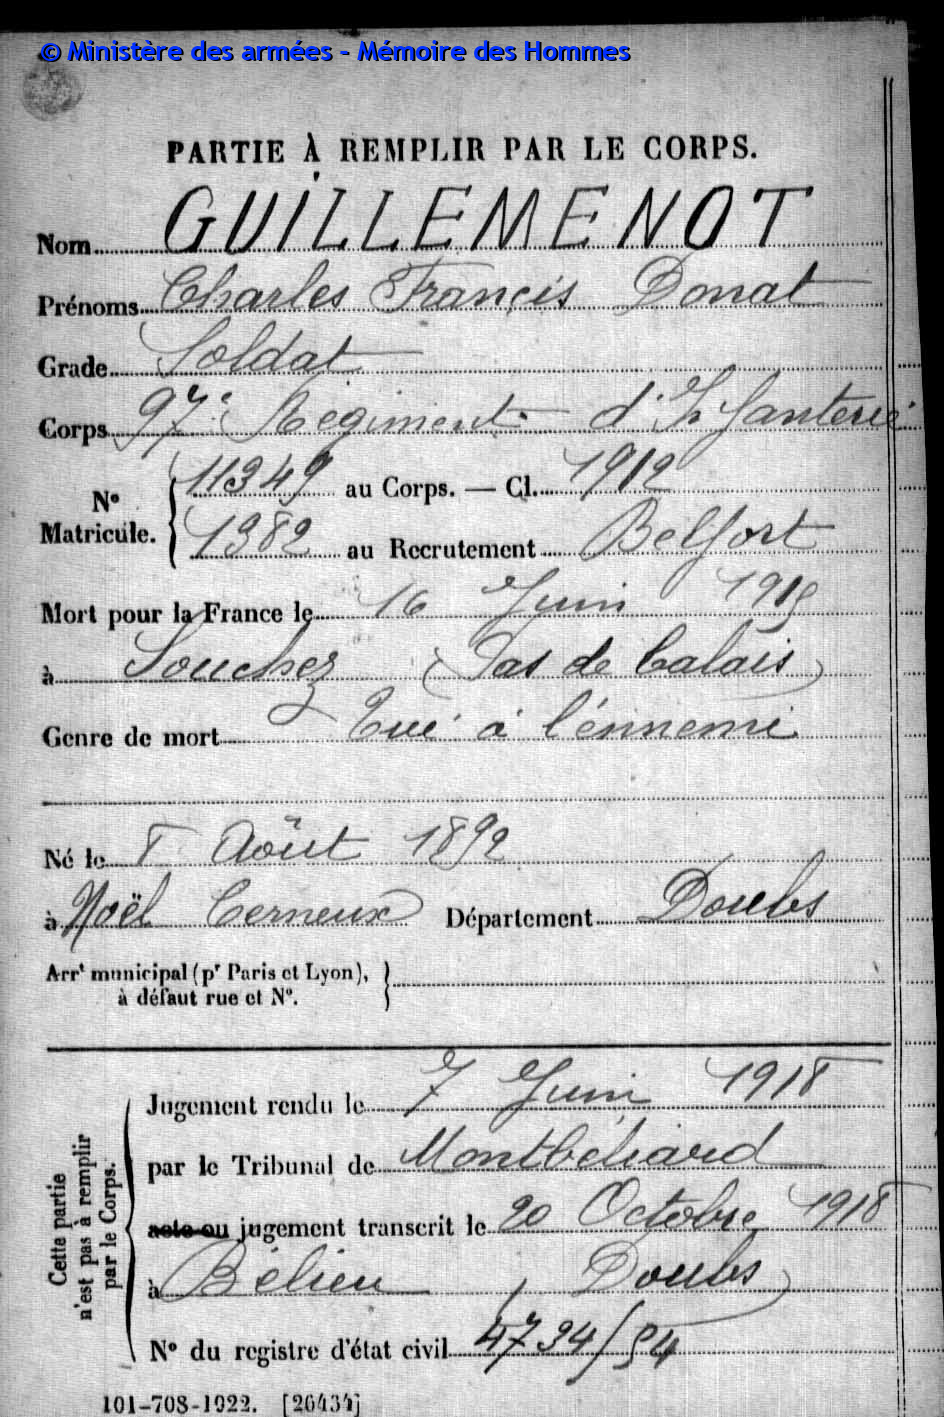 © Ministère des armées - Mémoire des Hommes
PARTIE À REMPLIR PAR LE CORPS.
Nom GUILLEMENOT
Prénoms Charles Francis Donat
Grade Soldat
Corps 97e Régiment d'Infanterie
N° Matricule. { 11349 au Corps. — Cl. 1912
1382 au Recrutement Belfort
Mort pour la France le 16 Juin 1915
à Souchez (Pas de Calais)
Genre de mort Tué à l'ennemi
Né le 8 Août 1892
à Noël Cerneux Département Doubs
Arrt municipal (pr Paris et Lyon),
à défaut rue et N°.
Cette partie
n'est pas à remplir
par le Corps.
Jugement rendu le 7 Juin 1918
par le Tribunal de Montbéliard
acte ou jugement transcrit le 20 Octobre 1918
à Bélieu, Doubs
N° du registre d'état civil 4734/54
101-708-1922. [26434]